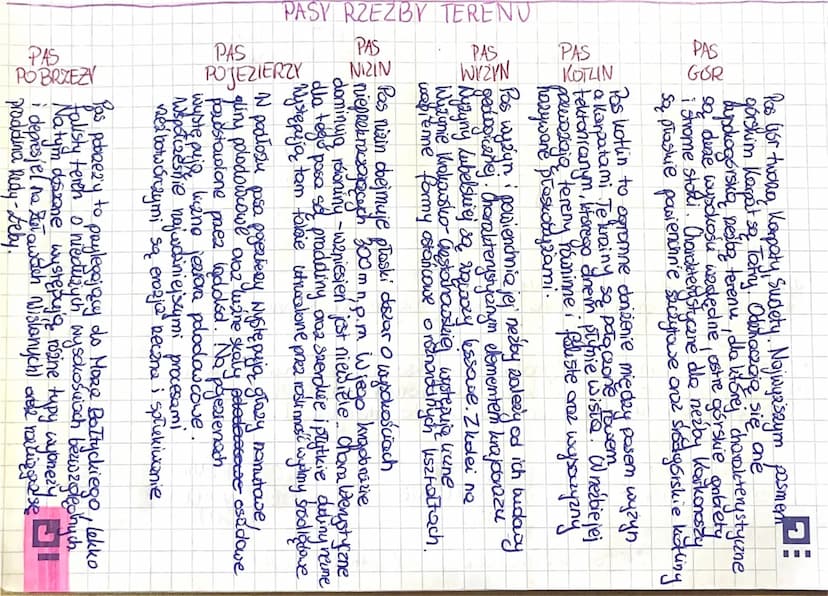 PASY RZEŹBY TERENU
PAS
POBRZEŻY
Pas pobrzeży to przylegający do Morza Bałtyckiego, lekko
falisty teren o niedużych wysokościach bezwzględnych.
Na tym obszarze występują różne typy wybrzeży
i depresje na Żuławach Wiślanych oraz rozciąga się
pradolina Redy-Łeby.
PAS
POJEZIERZY
W podłożu pasa pojezierzy występują głazy narzutowe,
gliny polodowcowe oraz luźne skały osadowe
pozostawione przez lądolód. Na pojezierzach
występują liczne jeziora polodowcowe.
Współcześnie najważniejszymi procesami
rzeźbotwórczymi są erozja rzeczna i spłukiwanie
PAS
NIZIN
Pas nizin obejmuje płaski obszar o wysokościach
nieprzekraczających 300 m n.p.m. W jego krajobrazie
dominują równiny - wzniesień jest niewiele. Charakterystyczne
dla tego pasa są pradoliny oraz szerokie i płytkie doliny rzeczne
Występują tam także utrwalone przez roślinność wydmy śródlądowe
PAS
WYŻYN
Pas wyżyn i powierzchnia jej rzeźby zależą od ich budowy
geologicznej. Charakterystycznym elementem krajobrazu
Wyżyny Lubelskiej są wąwozy lessowe. Z kolei na
Wyżynie Krakowsko-Częstochowskiej występują liczne
wapienne formy ostańcowe o różnorodnych kształtach.
PAS
KOTLIN
Pas kotlin to ogromne obniżenie między pasem wyżyn
a Karpatami. Te krainy są połączone rowem
tektonicznym, którego dnem płynie Wisła. W rzeźbie jej
przeważają tereny równinne i faliste oraz wysoczyzny
nazywane płaskowyżami.
PAS
GÓR
Pas gór tworzą Karpaty, Sudety. Najwyższym pasmem
górskim Karpat są Tatry. Odznaczają się one
wysokogórską rzeźbą terenu, dla której charakterystyczne
są duże wysokości względne, ostre górskie grzbiety
i strome stoki. Charakterystyczne dla rzeźby Karkonoszy
są płaskie powierzchnie szczytowe oraz śródgórskie kotliny